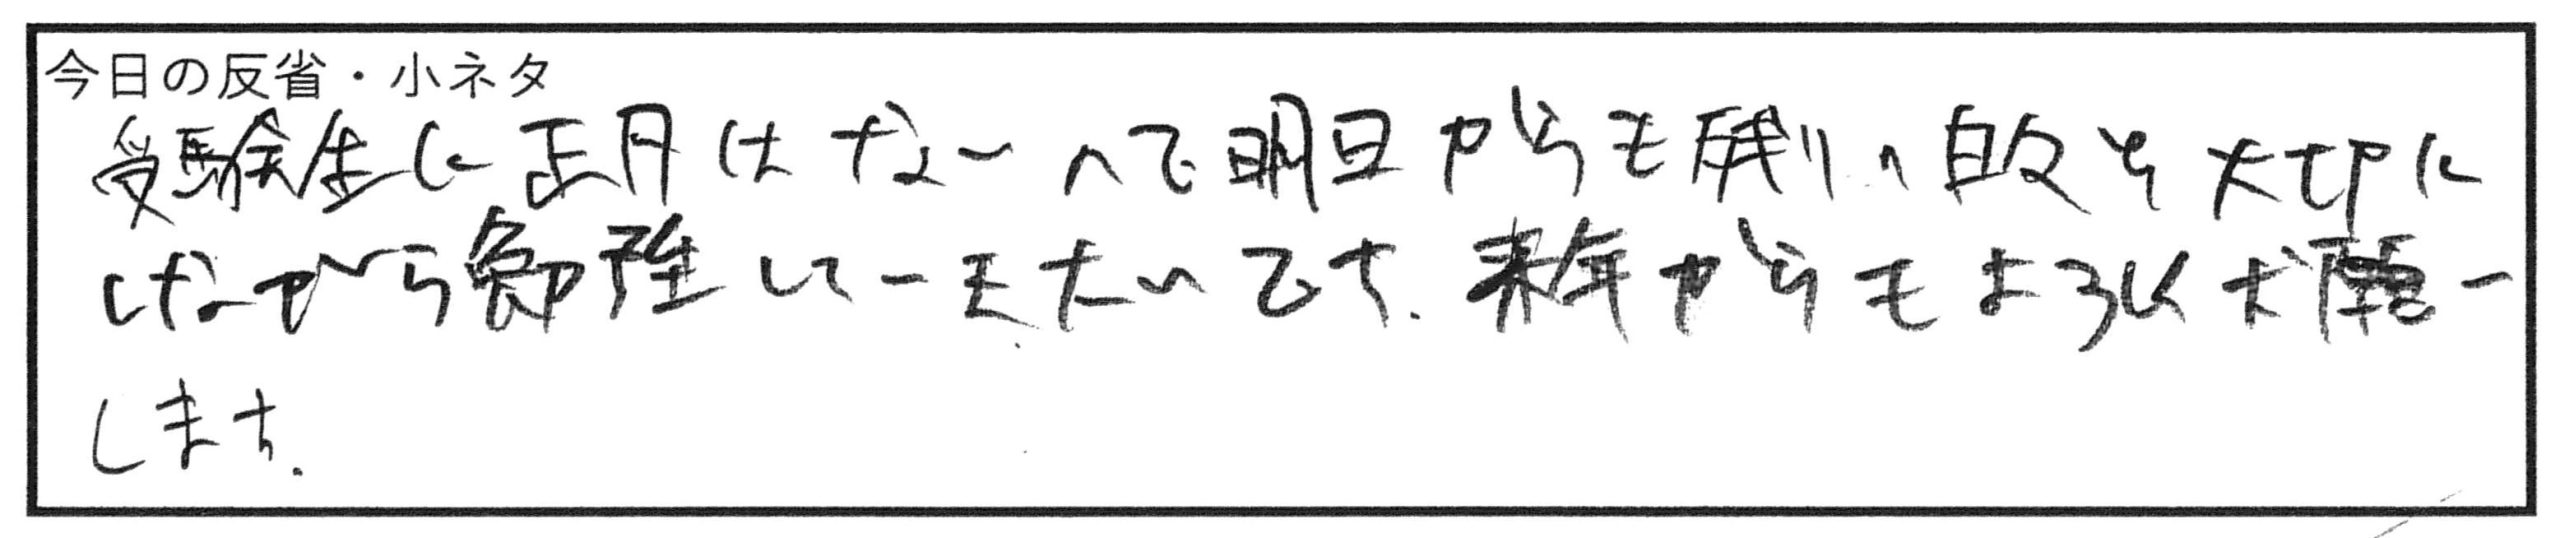 今日の反省・小ネタ
受験生に正月はないので明日からも残りの日数を大切に
しながら勉強していきたいです.来年からもよろしくお願い
します.